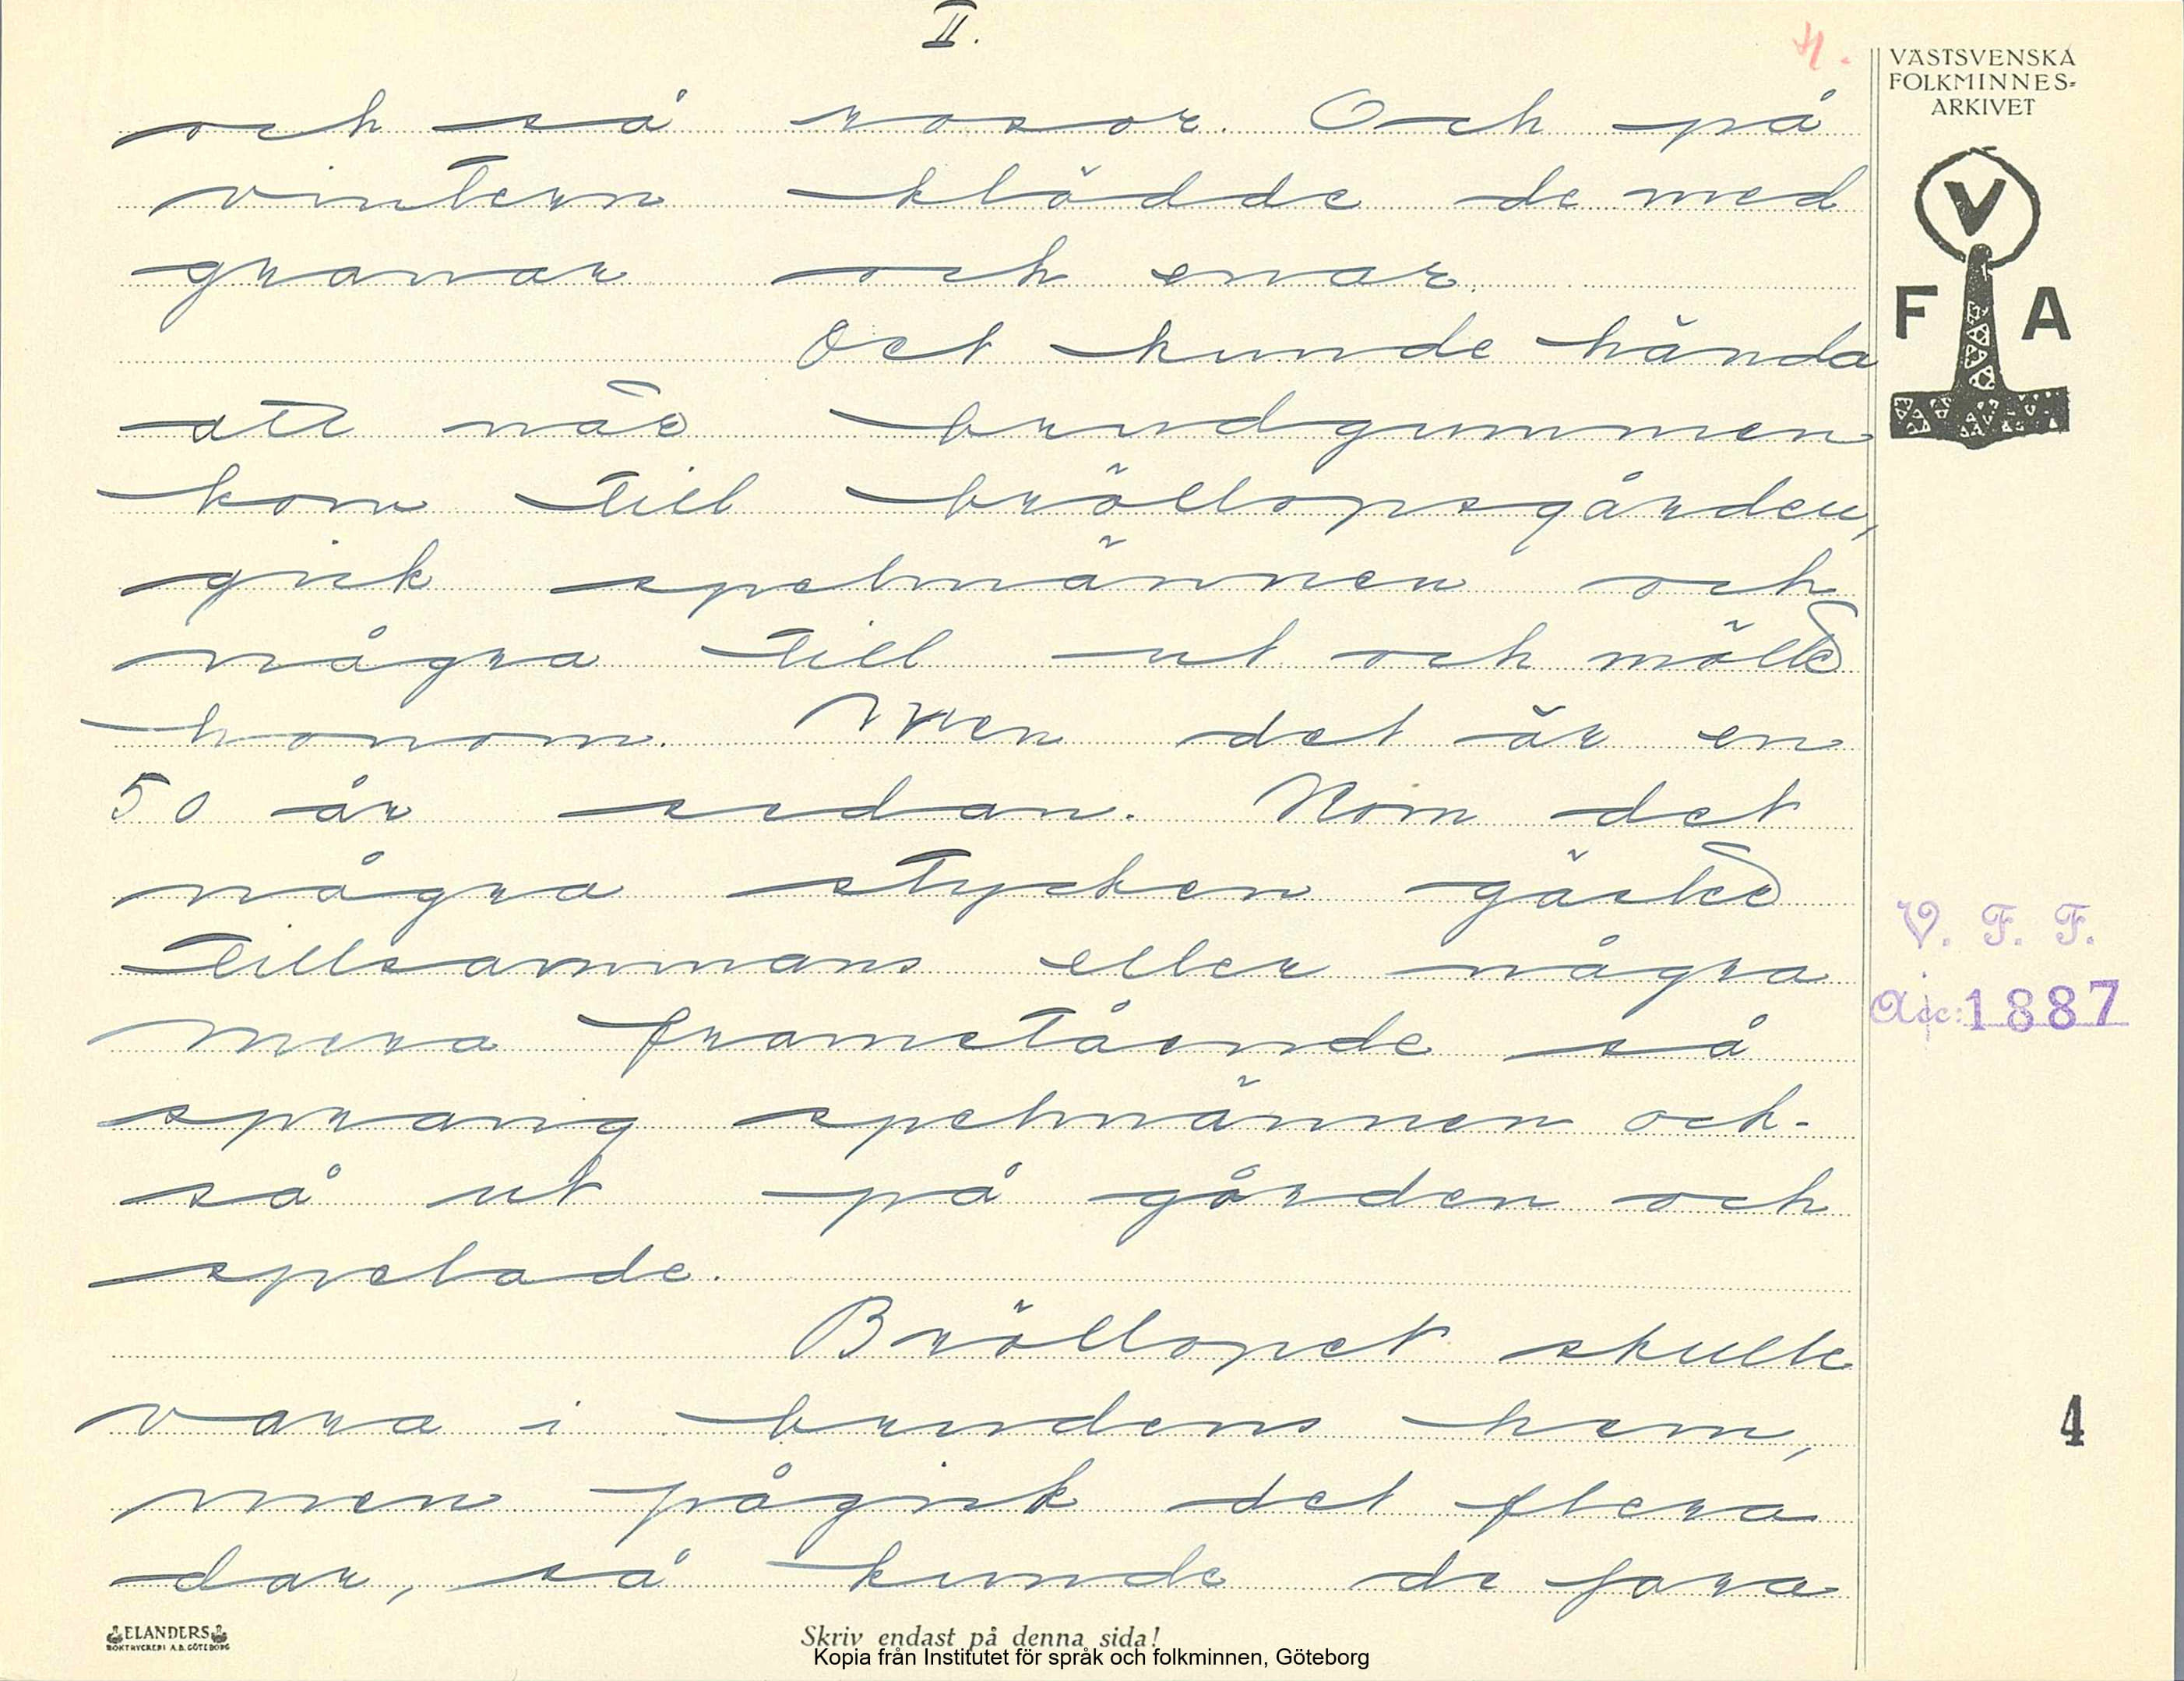 II.
4.
VÄSTSVENSKA
FOLKMINNES-
ARKIVET
V
F A
och så rosor. Och på
vintern klädde de med
granar och enar.
Det kunde hända
att när brudgummen
kom till bröllopsgården,
gick spelmännen och
några till ut och mötte
honom. Men det är en
50 år sedan. Kom det
några stycken gäster
tillsammans eller några
mera framstående så
sprang spelmännen ock-
så ut på gården och
spelade.
Bröllopet skulle
vara i brudens hem,
men pågick det flera
dar, så kunde de fara
V. F. F.
Acc: 1887
4
ELANDERS
BOKTRYCKERI A.B. GÖTEBORG
Skriv endast på denna sida!
Kopia från Institutet för språk och folkminnen, Göteborg